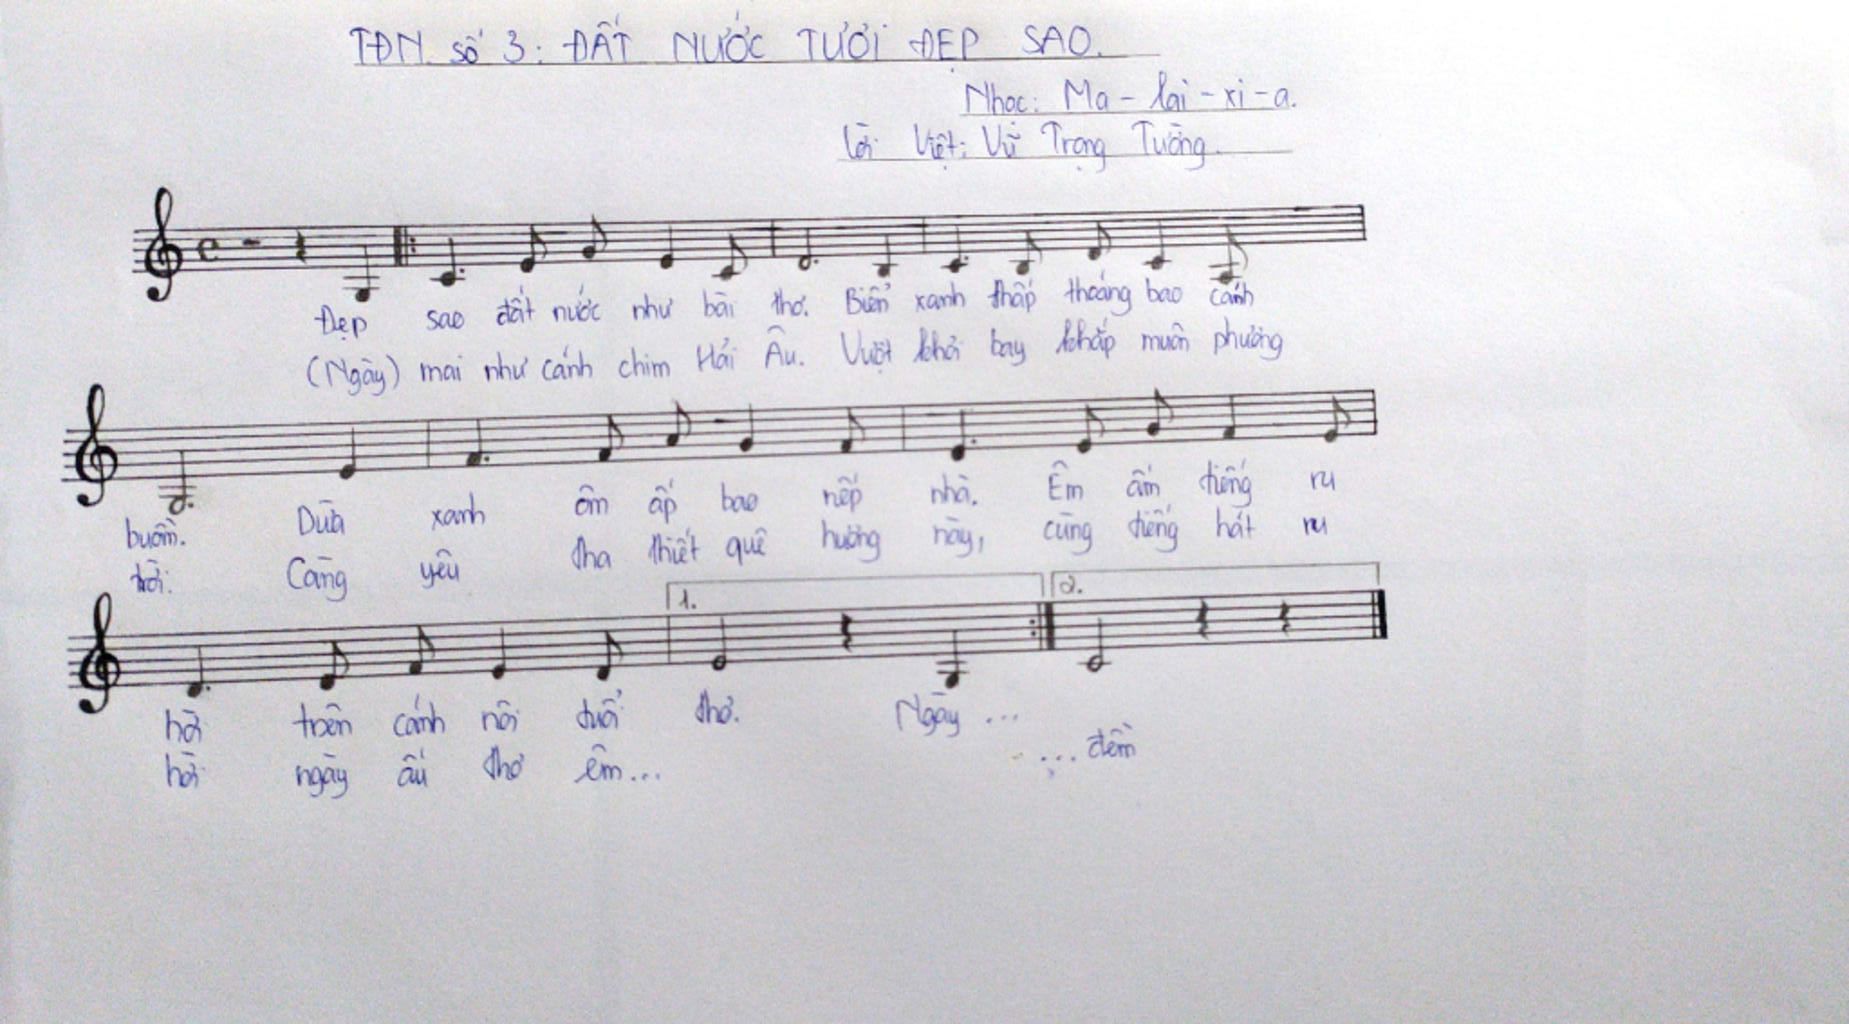 TĐN số 3: ĐẤT NƯỚC TƯƠI ĐẸP SAO.
Nhạc: Ma - lai - xi - a.
Lời Việt: Vũ Trọng Tường.
Đẹp sao đất nước như bài thơ. Biển xanh thấp thoáng bao cánh
(Ngày) mai như cánh chim Hải Âu. Vượt khỏi bay khắp muôn phương
buồm. Dừa xanh ôm ấp bao nếp nhà. Êm ấm tiếng ru
trời. Càng yêu tha thiết quê hương này, cùng tiếng hát ru
1. 2.
hời trên cánh nôi tuổi thơ. Ngày ...
hời ngày ấu thơ êm... ... đềm